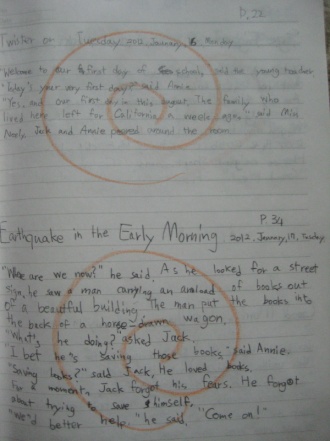 P. 22
Twister on Tuesday 2012 January, 16 Monday
"Welcome to our first day of school, said the young teacher.
"Today's your very first day?" said Annie.
"Yes, and our first one in this dugout. The family who
lived here left for California a week ago," said Miss
Neely. Jack and Annie peered around the room
P. 34
Earthquake in the Early Morning 2012, January, 17, Tuesday
"Where are we now?" he said. As he looked for a street
sign, he saw a man carrying an armload of books out
of a beautiful building. The man put the books into
the back of a horse-drawn wagon.
"What's he doing?" asked Jack.
"I bet he's saving those books" said Annie.
"Saving books?" said Jack. He loved books.
For a moment, Jack forgot his fears. He forgot
about trying to save himself.
"We'd better help," he said. "Come on!"